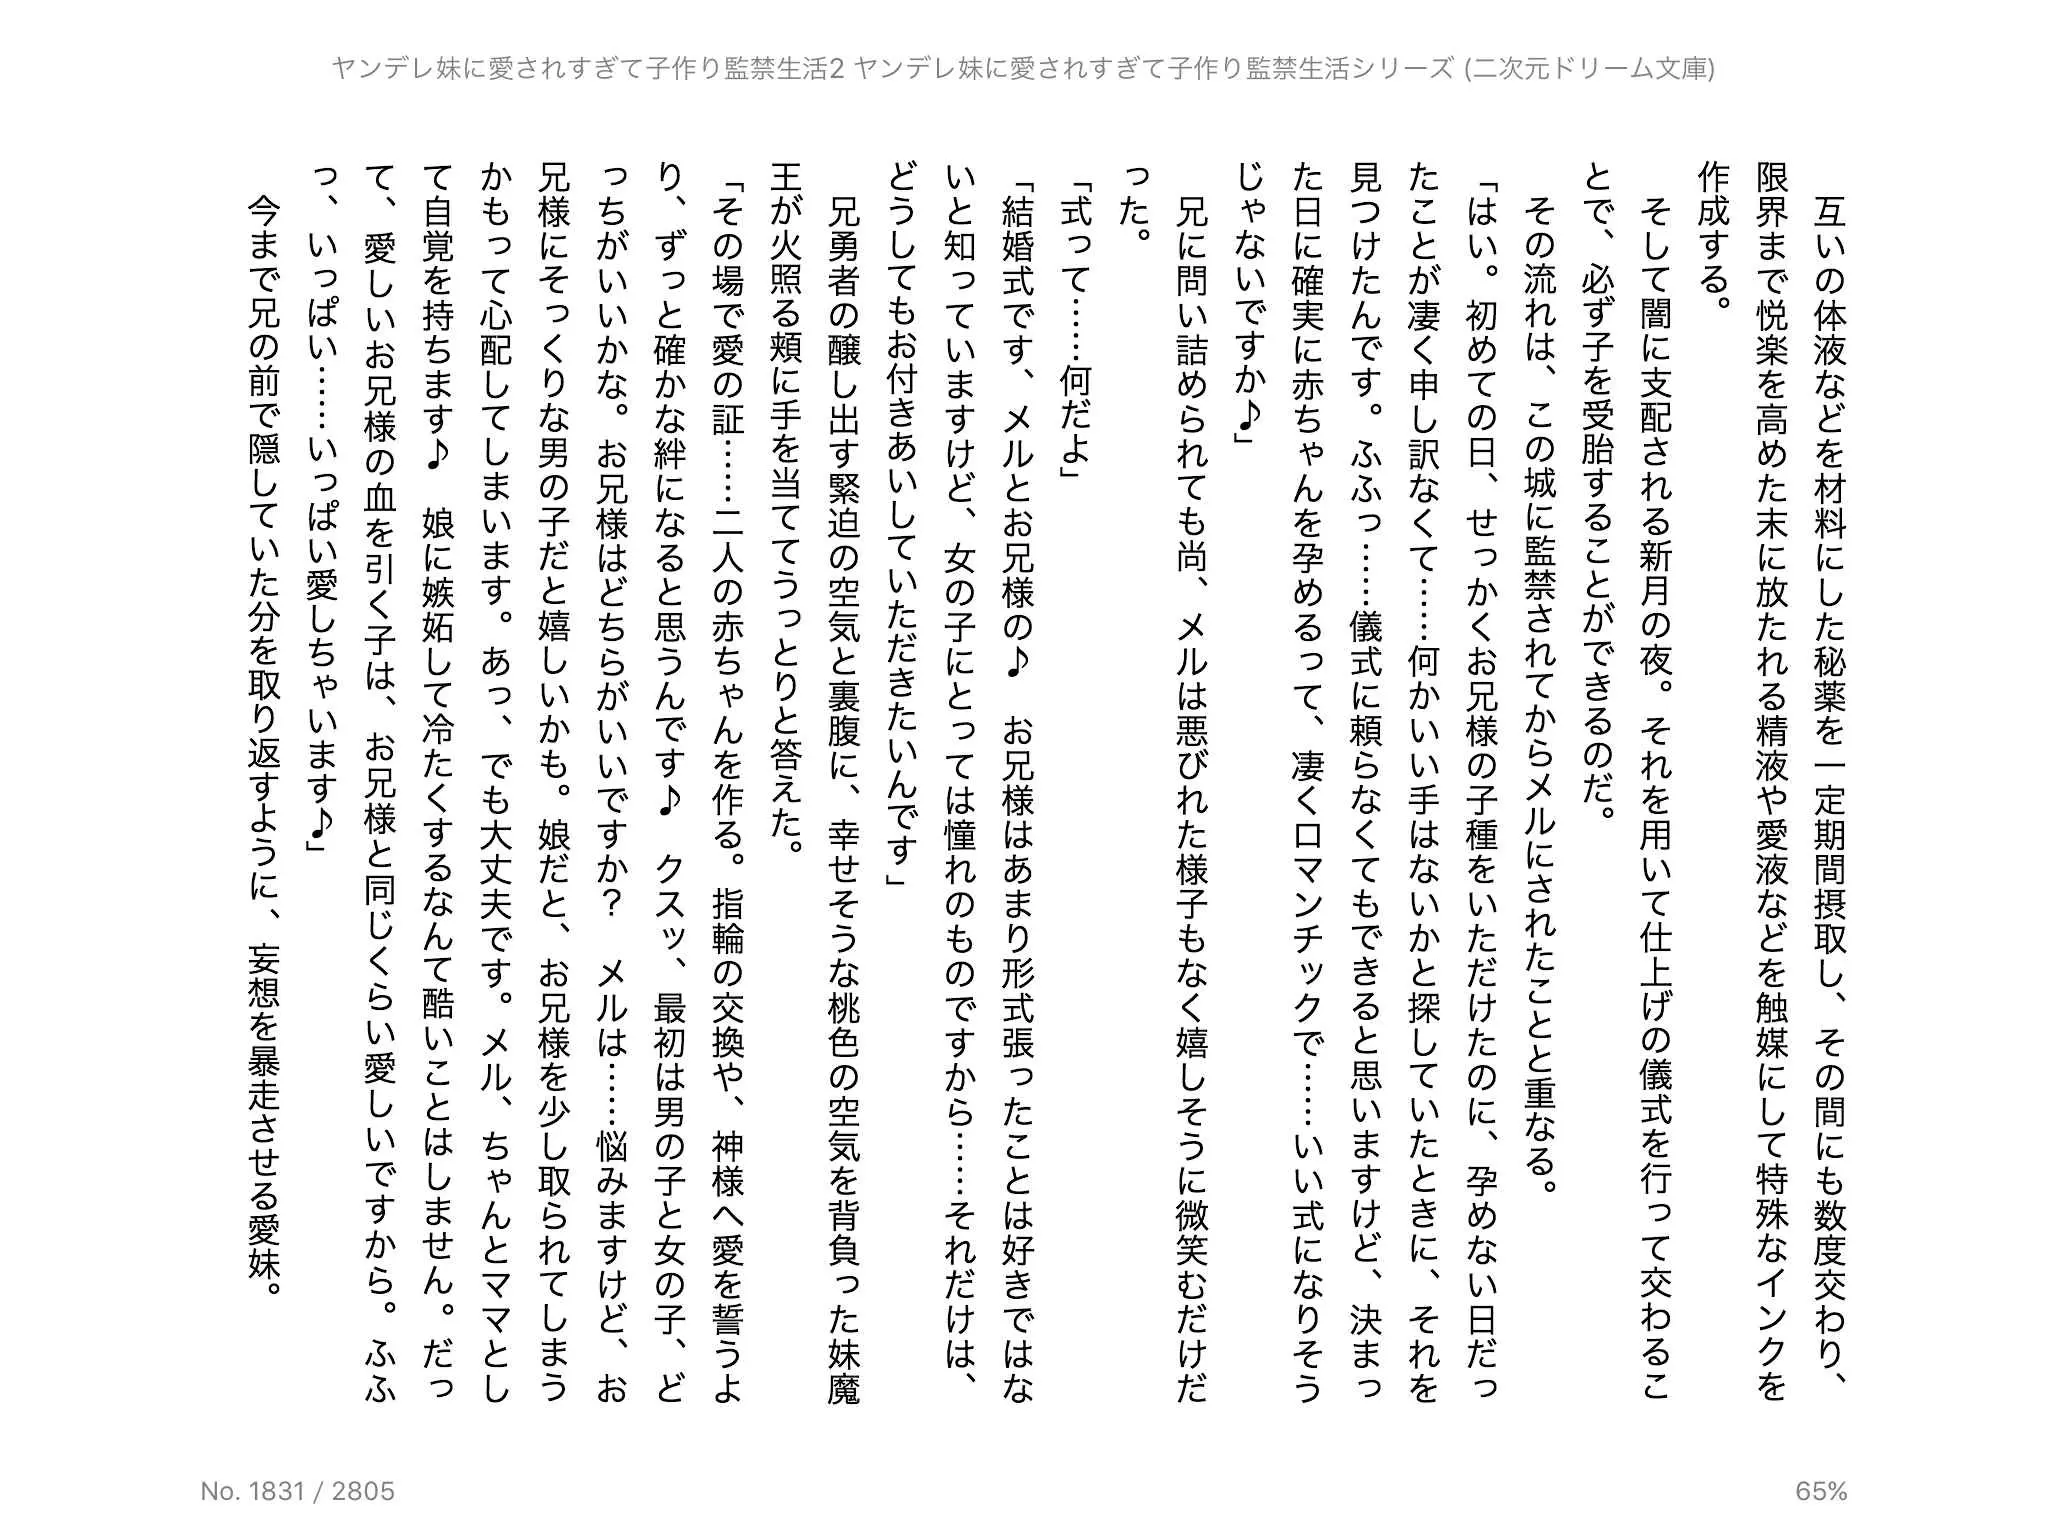 ヤンデレ妹に愛されすぎて子作り監禁生活2 ヤンデレ妹に愛されすぎて子作り監禁生活シリーズ (二次元ドリーム文庫)
　互いの体液などを材料にした秘薬を一定期間摂取し、その間にも数度交わり、
限界まで悦楽を高めた末に放たれる精液や愛液などを触媒にして特殊なインクを
作成する。
　そして闇に支配される新月の夜。それを用いて仕上げの儀式を行って交わるこ
とで、必ず子を受胎することができるのだ。
　その流れは、この城に監禁されてからメルにされたことと重なる。
「はい。初めての日、せっかくお兄様の子種をいただけたのに、孕めない日だっ
たことが凄く申し訳なくて……何かいい手はないかと探していたときに、それを
見つけたんです。ふふっ……儀式に頼らなくてもできると思いますけど、決まっ
た日に確実に赤ちゃんを孕めるって、凄くロマンチックで……いい式になりそう
じゃないですか♪」
　兄に問い詰められても尚、メルは悪びれた様子もなく嬉しそうに微笑むだけだ
った。
「式って……何だよ」
「結婚式です、メルとお兄様の♪　お兄様はあまり形式張ったことは好きではな
いと知っていますけど、女の子にとっては憧れのものですから……それだけは、
どうしてもお付きあいしていただきたいんです」
　兄勇者の醸し出す緊迫の空気と裏腹に、幸せそうな桃色の空気を背負った妹魔
王が火照る頬に手を当ててうっとりと答えた。
「その場で愛の証……二人の赤ちゃんを作る。指輪の交換や、神様へ愛を誓うよ
り、ずっと確かな絆になると思うんです♪　クスッ、最初は男の子と女の子、ど
っちがいいかな。お兄様はどちらがいいですか？　メルは……悩みますけど、お
兄様にそっくりな男の子だと嬉しいかも。娘だと、お兄様を少し取られてしまう
かもって心配してしまいます。あっ、でも大丈夫です。メル、ちゃんとママとし
て自覚を持ちます♪　娘に嫉妬して冷たくするなんて酷いことはしません。だっ
て、愛しいお兄様の血を引く子は、お兄様と同じくらい愛しいですから。ふふ
っ、いっぱい……いっぱい愛しちゃいます♪」
　今まで兄の前で隠していた分を取り返すように、妄想を暴走させる愛妹。
No. 1831 / 2805
65%